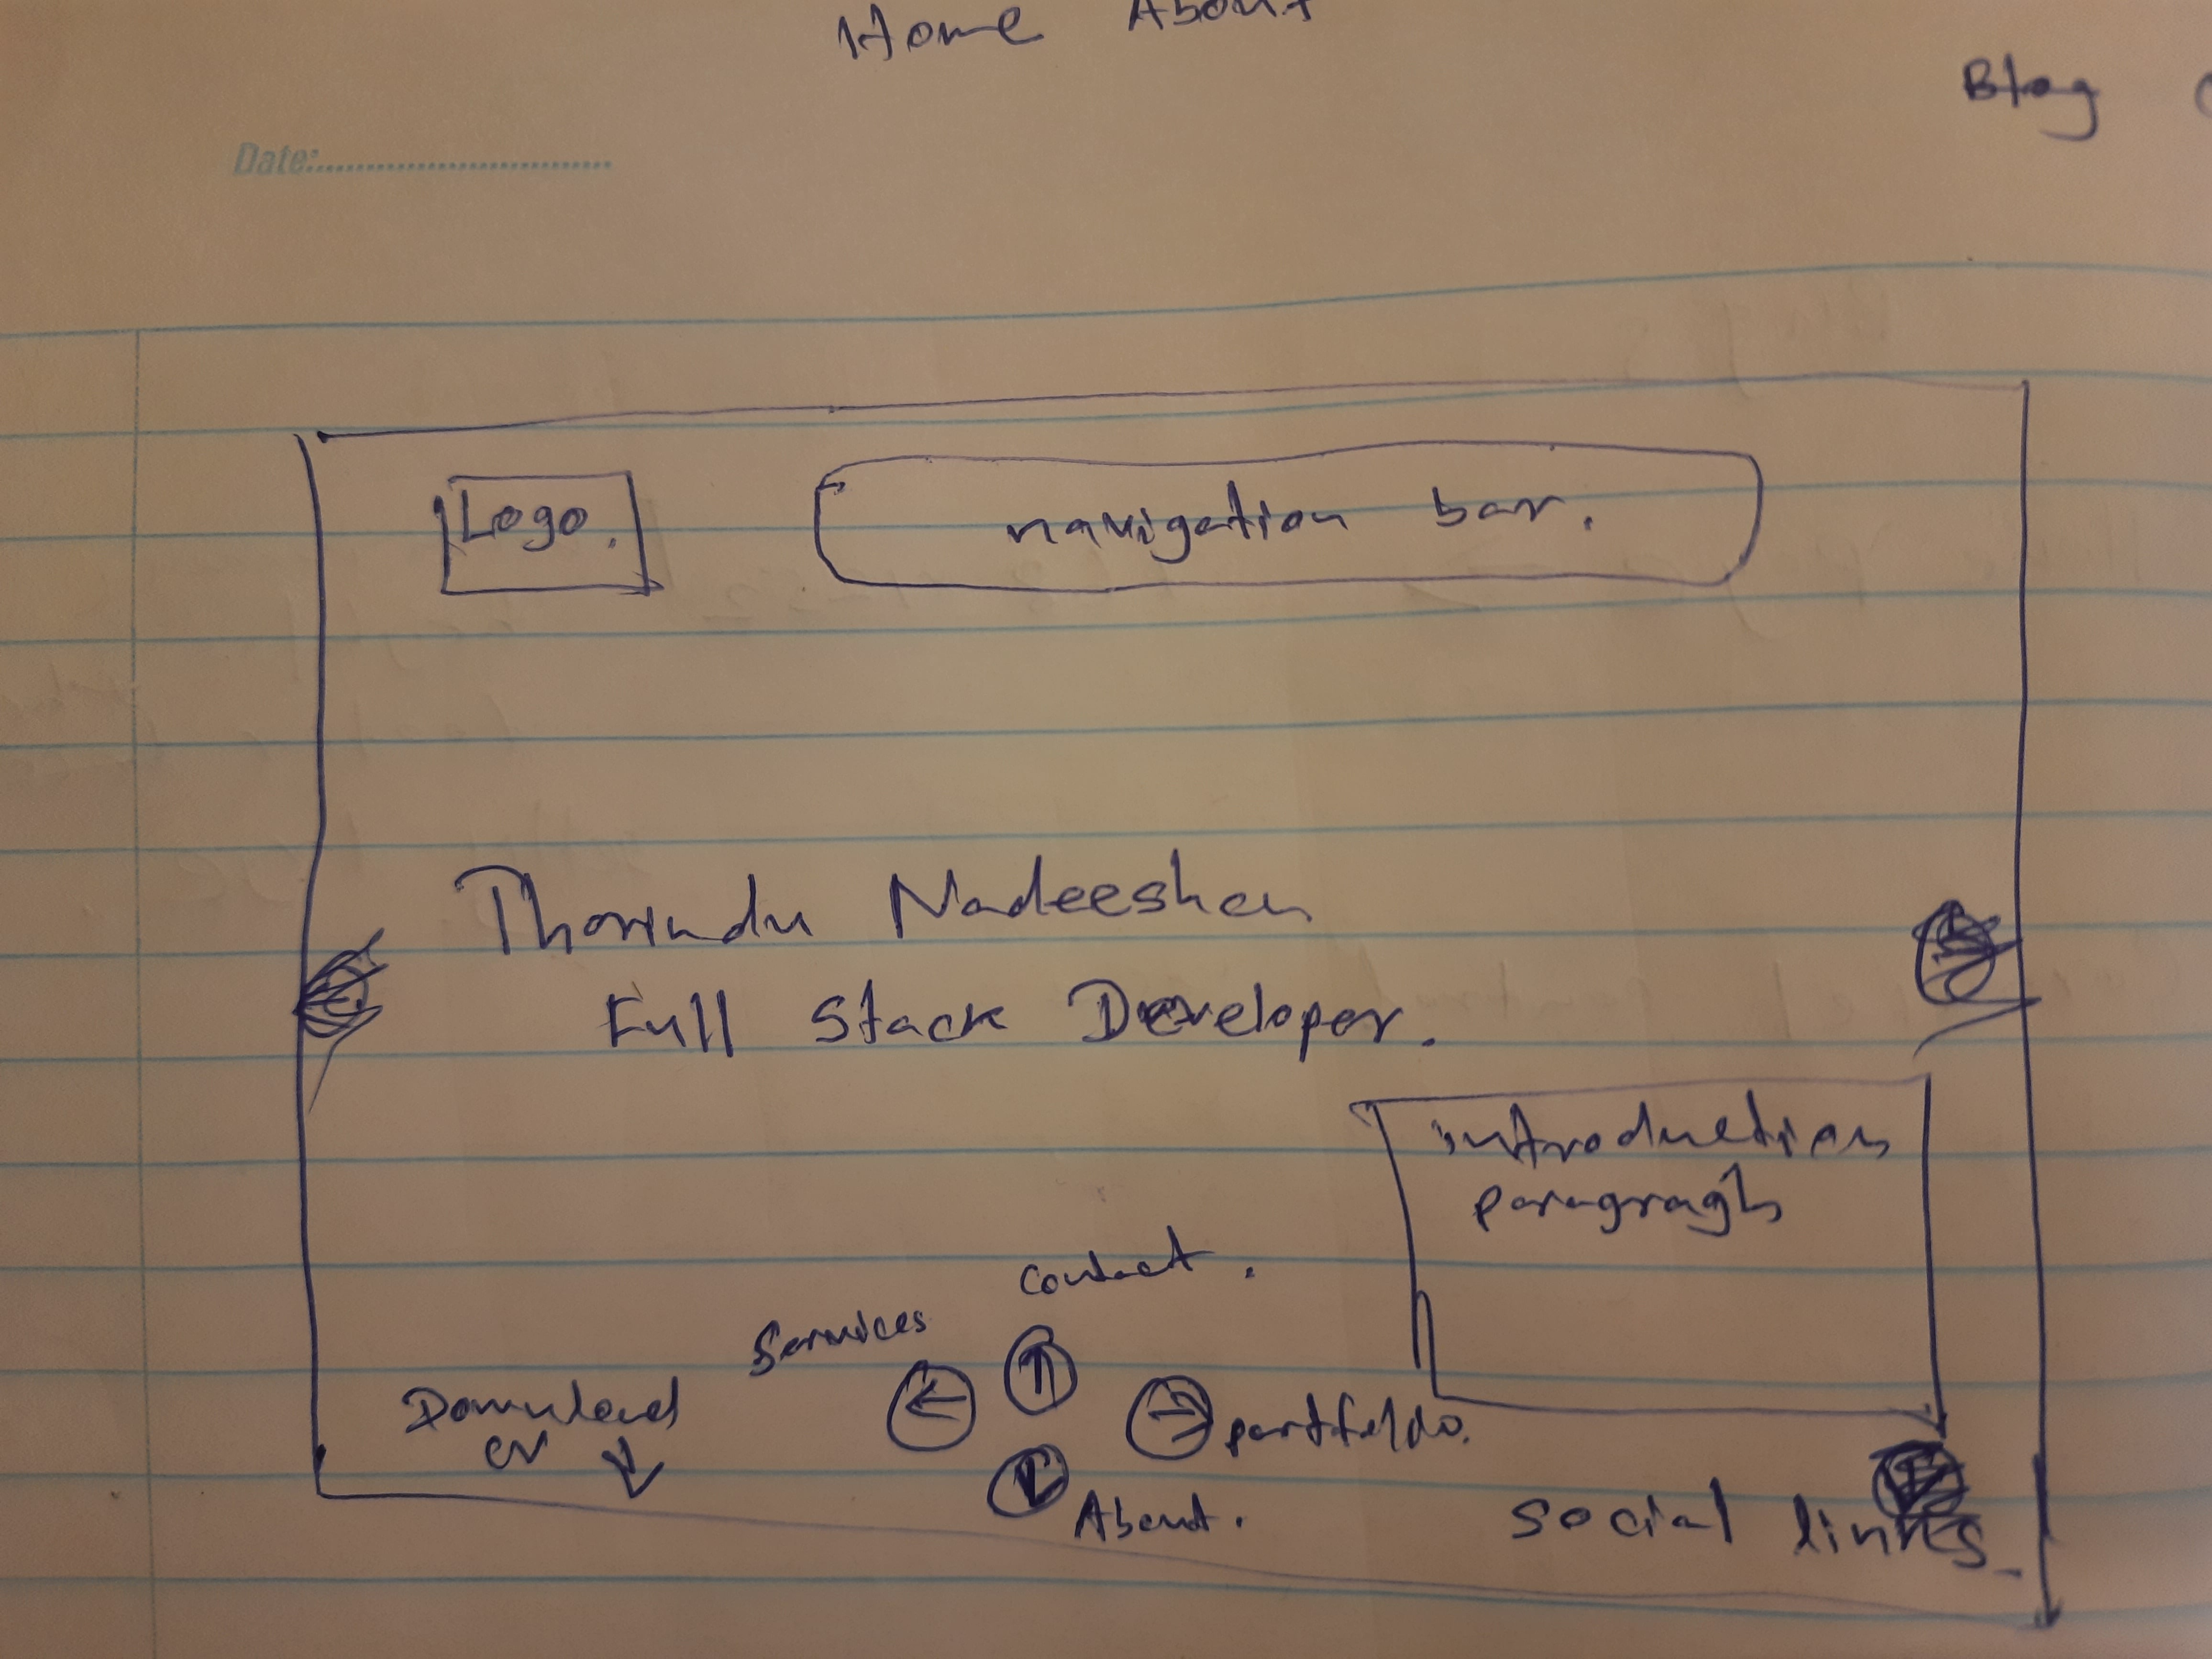 Home About
Blog
Date:
Logo.
navigation bar.
Tharindu Nadeeshan
Full Stack Developer.
introduction
paragraph
contact.
Services
Download
CV
portfolio.
About.
social links